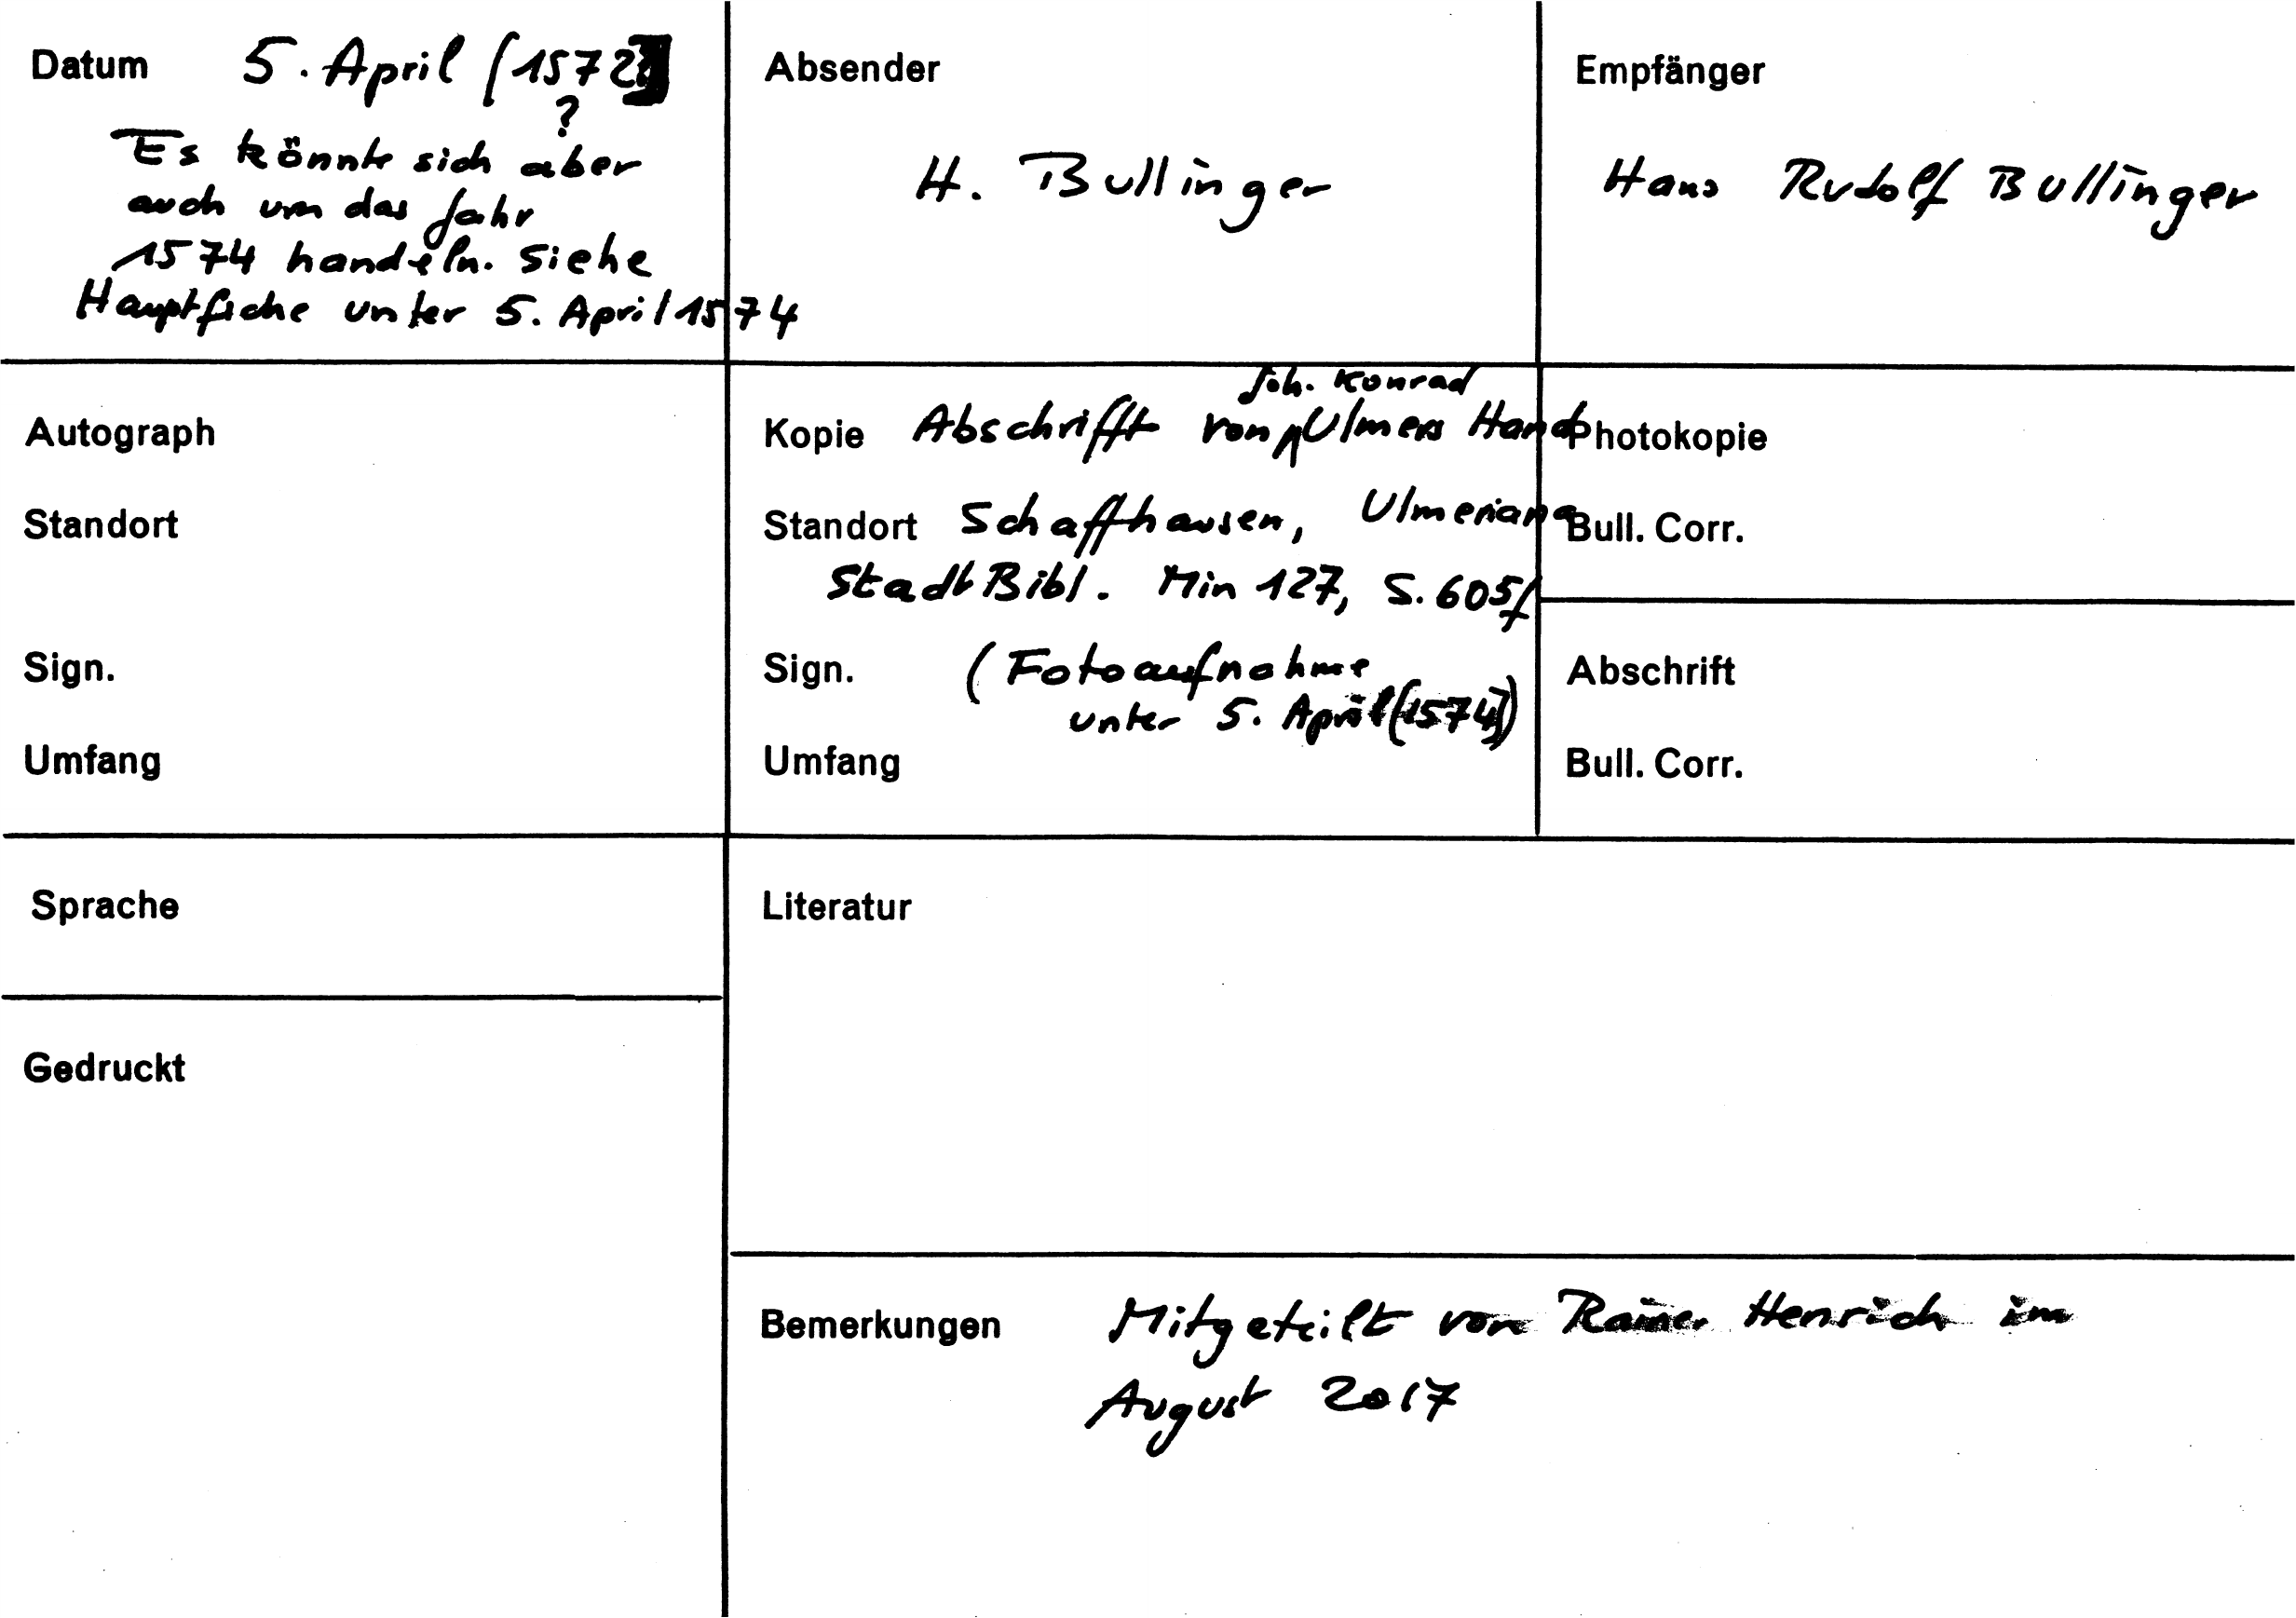 Datum 5. April [1572]
?
Es könnte sich aber
auch um das Jahr
1574 handeln. Siehe
Hauptfiche unter 5. April 1574
Absender
H. Bullinger
Empfänger
Hans Rudolf Bullinger
Autograph
Standort
Sign.
Umfang
Joh. Konrad
Kopie Abschrifft von Ulmers Hand
Standort Schaffhausen, Ulmeriana
StadtBibl. Min 127, S. 605f
Sign. (Fotoaufnahme
unter 5. April [1574])
Umfang
Photokopie
Bull. Corr.
Abschrift
Bull. Corr.
Sprache
Literatur
Gedruckt
Bemerkungen Mitgeteilt von Rainer Henrich im
August 2017